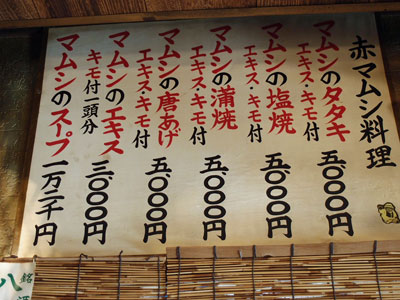 赤マムシ料理
マムシのタタキ
エキス・キモ付
五〇〇〇円
マムシの塩焼
エキス・キモ付
五〇〇〇円
マムシの蒲焼
エキス・キモ付
五〇〇〇円
マムシの唐あげ
エキス・キモ付
五〇〇〇円
マムシのエキス
キモ付一頭分
三〇〇〇円
マムシのスープ
一万二千円
銘酒
八